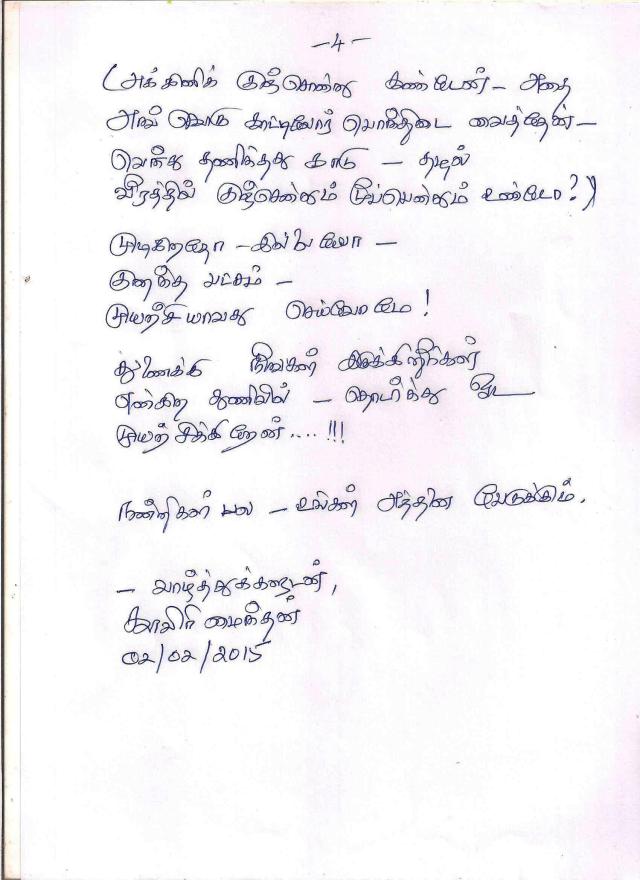 - 4 -
(அக்கினிக் குஞ்சொன்று கண்டேன் - அதை
அங்கொரு காட்டிலோர் பொந்திடை வைத்தேன் -
வெந்து தணிந்தது காடு - தழல்
வீரத்தில் குஞ்சென்றும் மூப்பென்றும் உண்டோ?)
முடிகிறதோ - இல்லையோ -
குறைந்த பட்சம் -
முயற்சியாவது செய்வோமே!
துணைக்கு நீங்கள் இருக்கிறீர்கள்
என்கிற துணிவில் - தொடர்ந்து
முயற்சிக்கிறேன்....!!!
நன்றிகள் பல - உங்கள் அத்தினை பேருக்கும்.
- வாழ்த்துக்களுடன்,
காவிரிமைந்தன்
02/02/2015